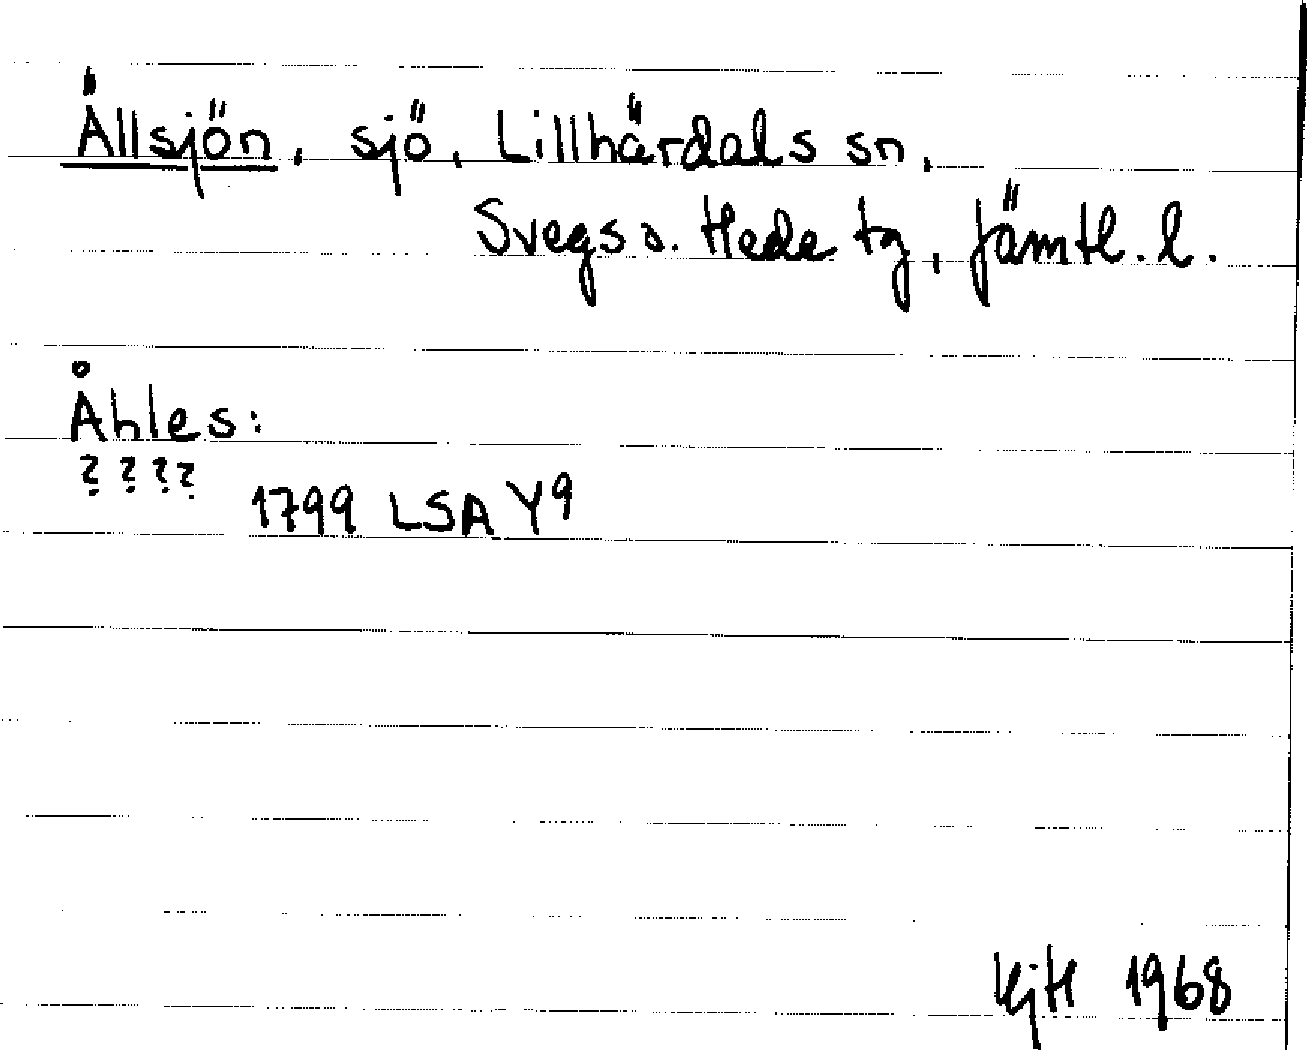 Ällsjön, sjö, Lillhärdals sn,
Svegs o. Hede tg, Jämtl. l.
Åhles:
? ? ? ?
1799 LSA Y9
KjH 1968